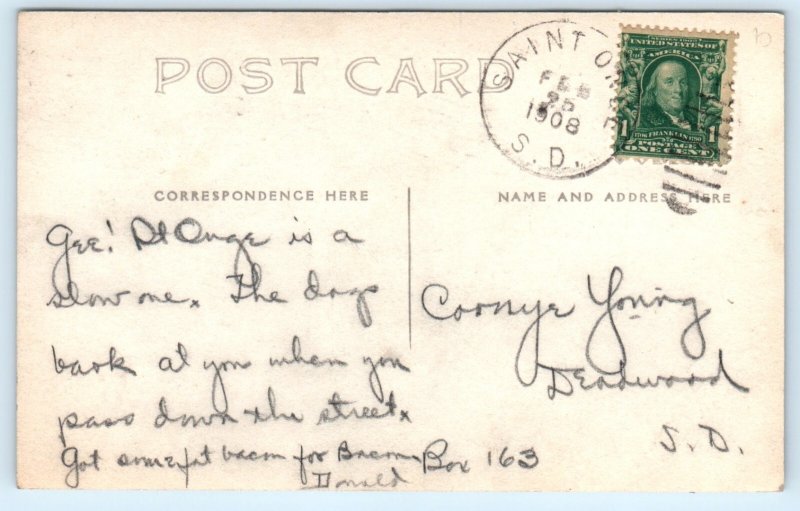 POST CARD
SAINT ON
FEB
25
1908
S.D.
SERIES 1902
UNITED STATES OF
AMERICA
1 FRANKLIN 1
POSTAGE
ONE CENT
CORRESPONDENCE HERE
NAME AND ADDRESS HERE
Gee! St Onge is a
slow one. The dogs
bark at you when you
pass down the street.
Got some fat bacon for Bacon
Donald
Young
Deadwood
S.D.
Box 163